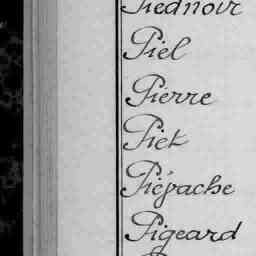 Piednoir
Piel
Pierre
Piet
Piépache
Pigeard